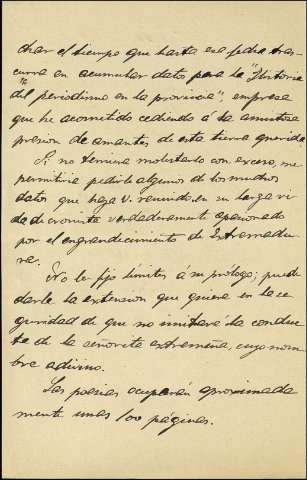 char el tiempo que hasta esa fecha tras-
curra en acumular datos para la "Historia
del periodismo en la provincia", empresa
que he acometido cediendo á la amistosa
presion de amantes de esta tierra querida.
Si no temiera molestarlo con exceso, me
permitiria pedirle algunos de los muchos
datos que haya V. reunido en su larga vi
da de cronista verdaderamente apasionado
por el engrandecimiento de Extremadu-
ra.
No le fijo limites a su prologo; puede
darle la extension que quiera en la se
guridad de que no imitará la conduc
ta de la señorita extremeña cuyo nom
bre adivino.
Las poesias ocuparán aproximada
mente unas 100 páginas.